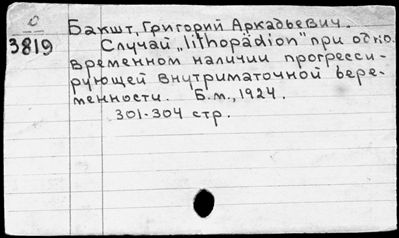 0
3819
Бакшт, Григорий Аркадьевич.
Случай „lithopädion" при одно-
временном наличии прогресси-
рующей внутриматочной бере-
менности. Б.м., 1924.
301-304 стр.